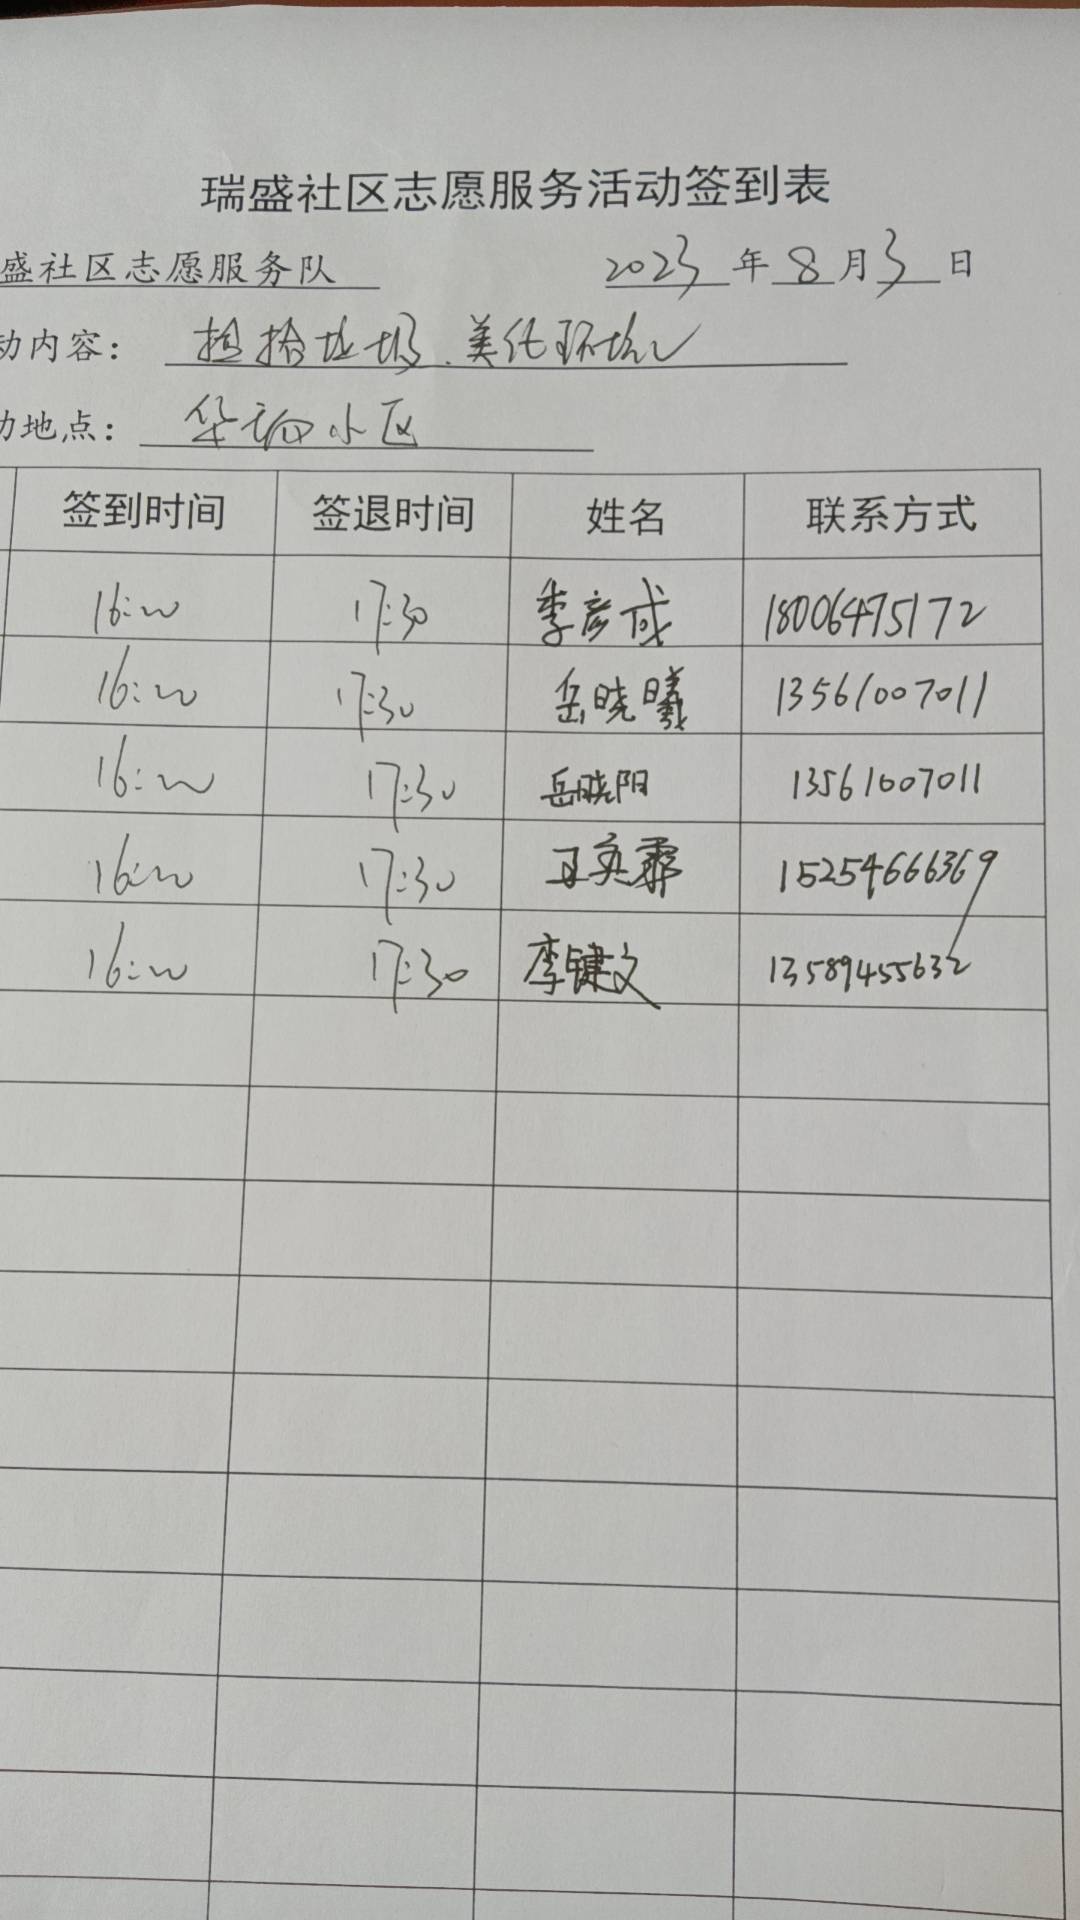 瑞盛社区志愿服务活动签到表
盛社区志愿服务队 2023年8月3日
动内容: 捡拾垃圾.美化环境
动地点: 华瑞小区
签到时间 签退时间 姓名 联系方式
16:00 17:30 季彦成 18006475172
16:00 17:30 岳晓曦 13561007011
16:00 17:30 岳晓阳 13561007011
16:00 17:30 王奕霏 15254666369
16:00 17:30 李键文 13589455632